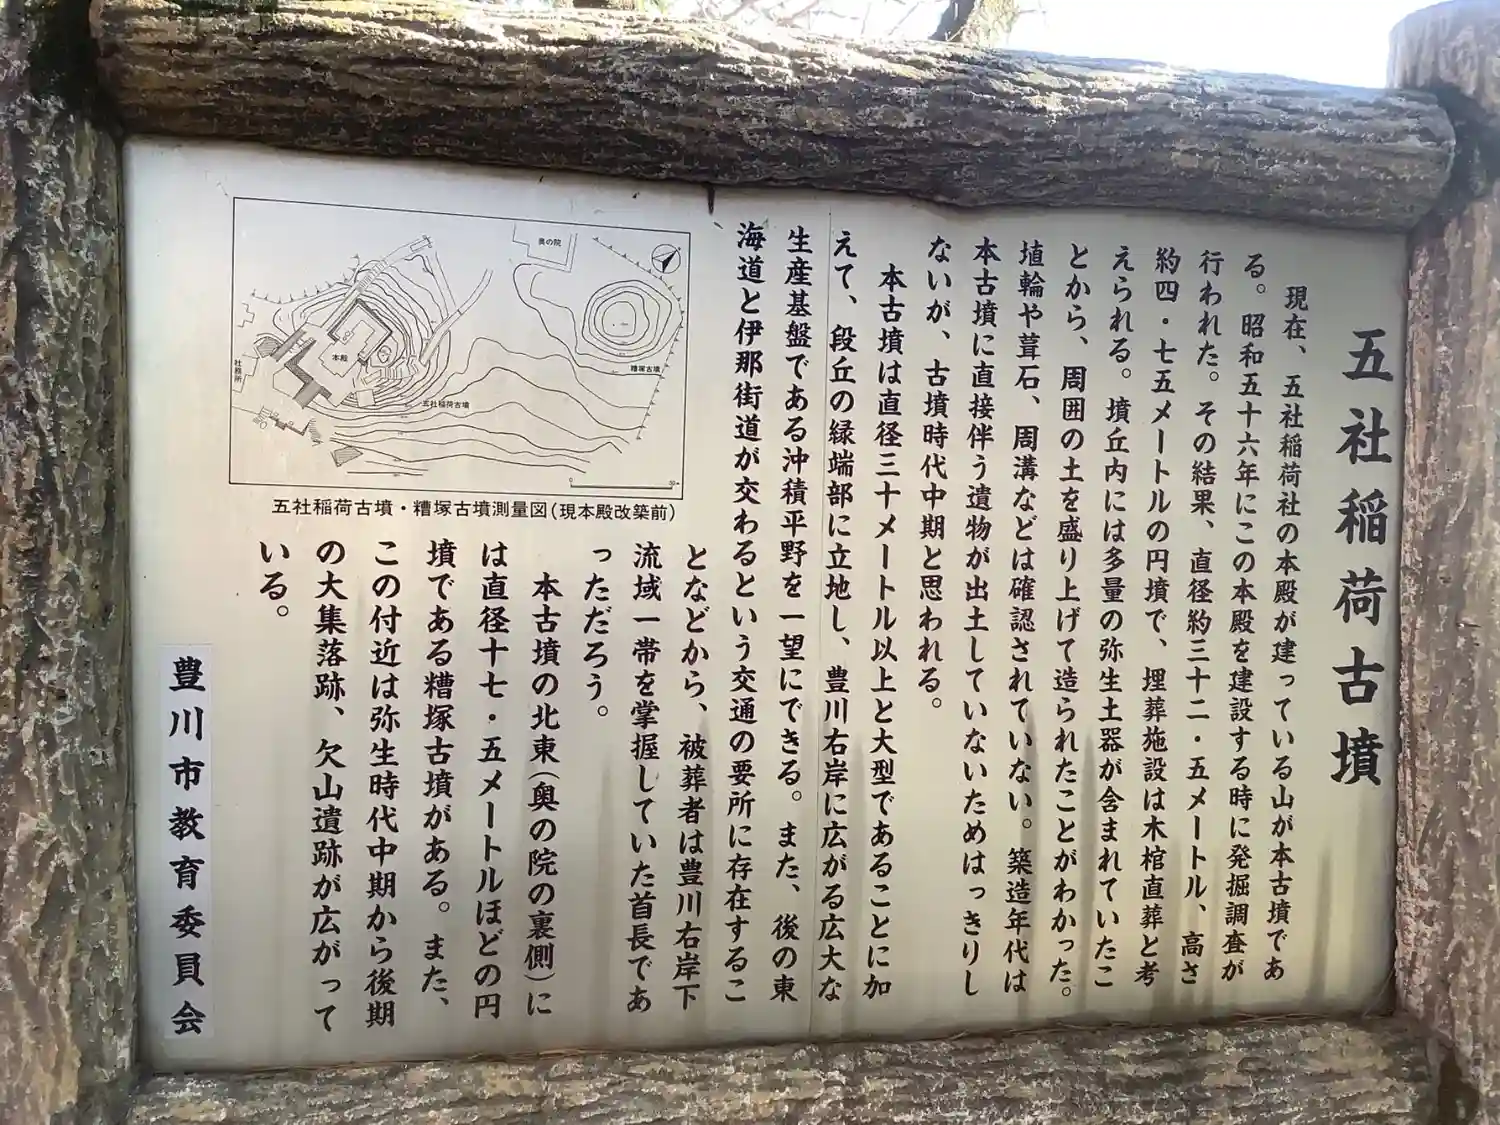 五社稲荷古墳
現在、五社稲荷社の本殿が建っている山が本古墳であ
る。昭和五十六年にこの本殿を建設する時に発掘調査が
行われた。その結果、直径約三十二・五メートル、高さ
約四・七五メートルの円墳で、埋葬施設は木棺直葬と考
えられる。墳丘内には多量の弥生土器が含まれていたこ
とから、周囲の土を盛り上げて造られたことがわかった。
埴輪や葺石、周溝などは確認されていない。築造年代は
本古墳に直接伴う遺物が出土していないためはっきりし
ないが、古墳時代中期と思われる。
本古墳は直径三十メートル以上と大型であることに加
えて、段丘の縁端部に立地し、豊川右岸に広がる広大な
生産基盤である沖積平野を一望にできる。また、後の東
海道と伊那街道が交わるという交通の要所に存在するこ
となどから、被葬者は豊川右岸下
流域一帯を掌握していた首長であ
っただろう。
本古墳の北東(奥の院の裏側)に
は直径十七・五メートルほどの円
墳である糟塚古墳がある。また、
この付近は弥生時代中期から後期
の大集落跡、欠山遺跡が広がって
いる。
豊川市教育委員会
奥の院
本殿
社務所
糟塚古墳
五社稲荷古墳
五社稲荷古墳・糟塚古墳測量図(現本殿改築前)